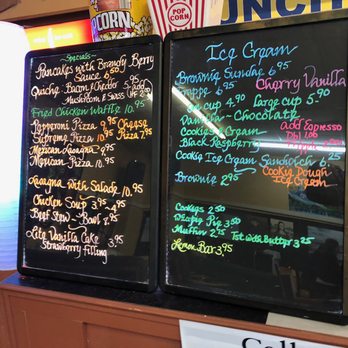 POPCORN
POP CORN
UNCH
~Specials~
Pancakes with Brandy Berry
Sauce 6.50
Quiche Bacon & Chedder 5.95
Mushroom & Swiss
Fried Chicken Waffle 10.95
Pepperoni Pizza 9.95
Cheese
Supreme Pizza 10.95
Pizza 7.95
Mexican Lasagna 9.95
Mexican Pizza 10.95
Lasagna with Salade 10.95
Chicken Soup 3.95
Beef Stew ~ Bowl
Lite Vanilla Cake 3.95
Strawberry filling
Ice Cream
Brownie Sundae 6.95
Frappe 6.95
Cherry Vanilla
Sm cup 4.90 large cup 5.90
Vanilla ~ Chocolate
Cookies & Cream
add Espresso
Black Raspberry
Dbl 1.00
Cookie Ice Cream Sandwich 6.25
Brownie 2.95
Cookie Dough
Ice Cream
Cookies 2.50
Whoopie Pie 3.50
Muffin 2.95
Tst with Butter 3.25
Lemon Bar 3.95